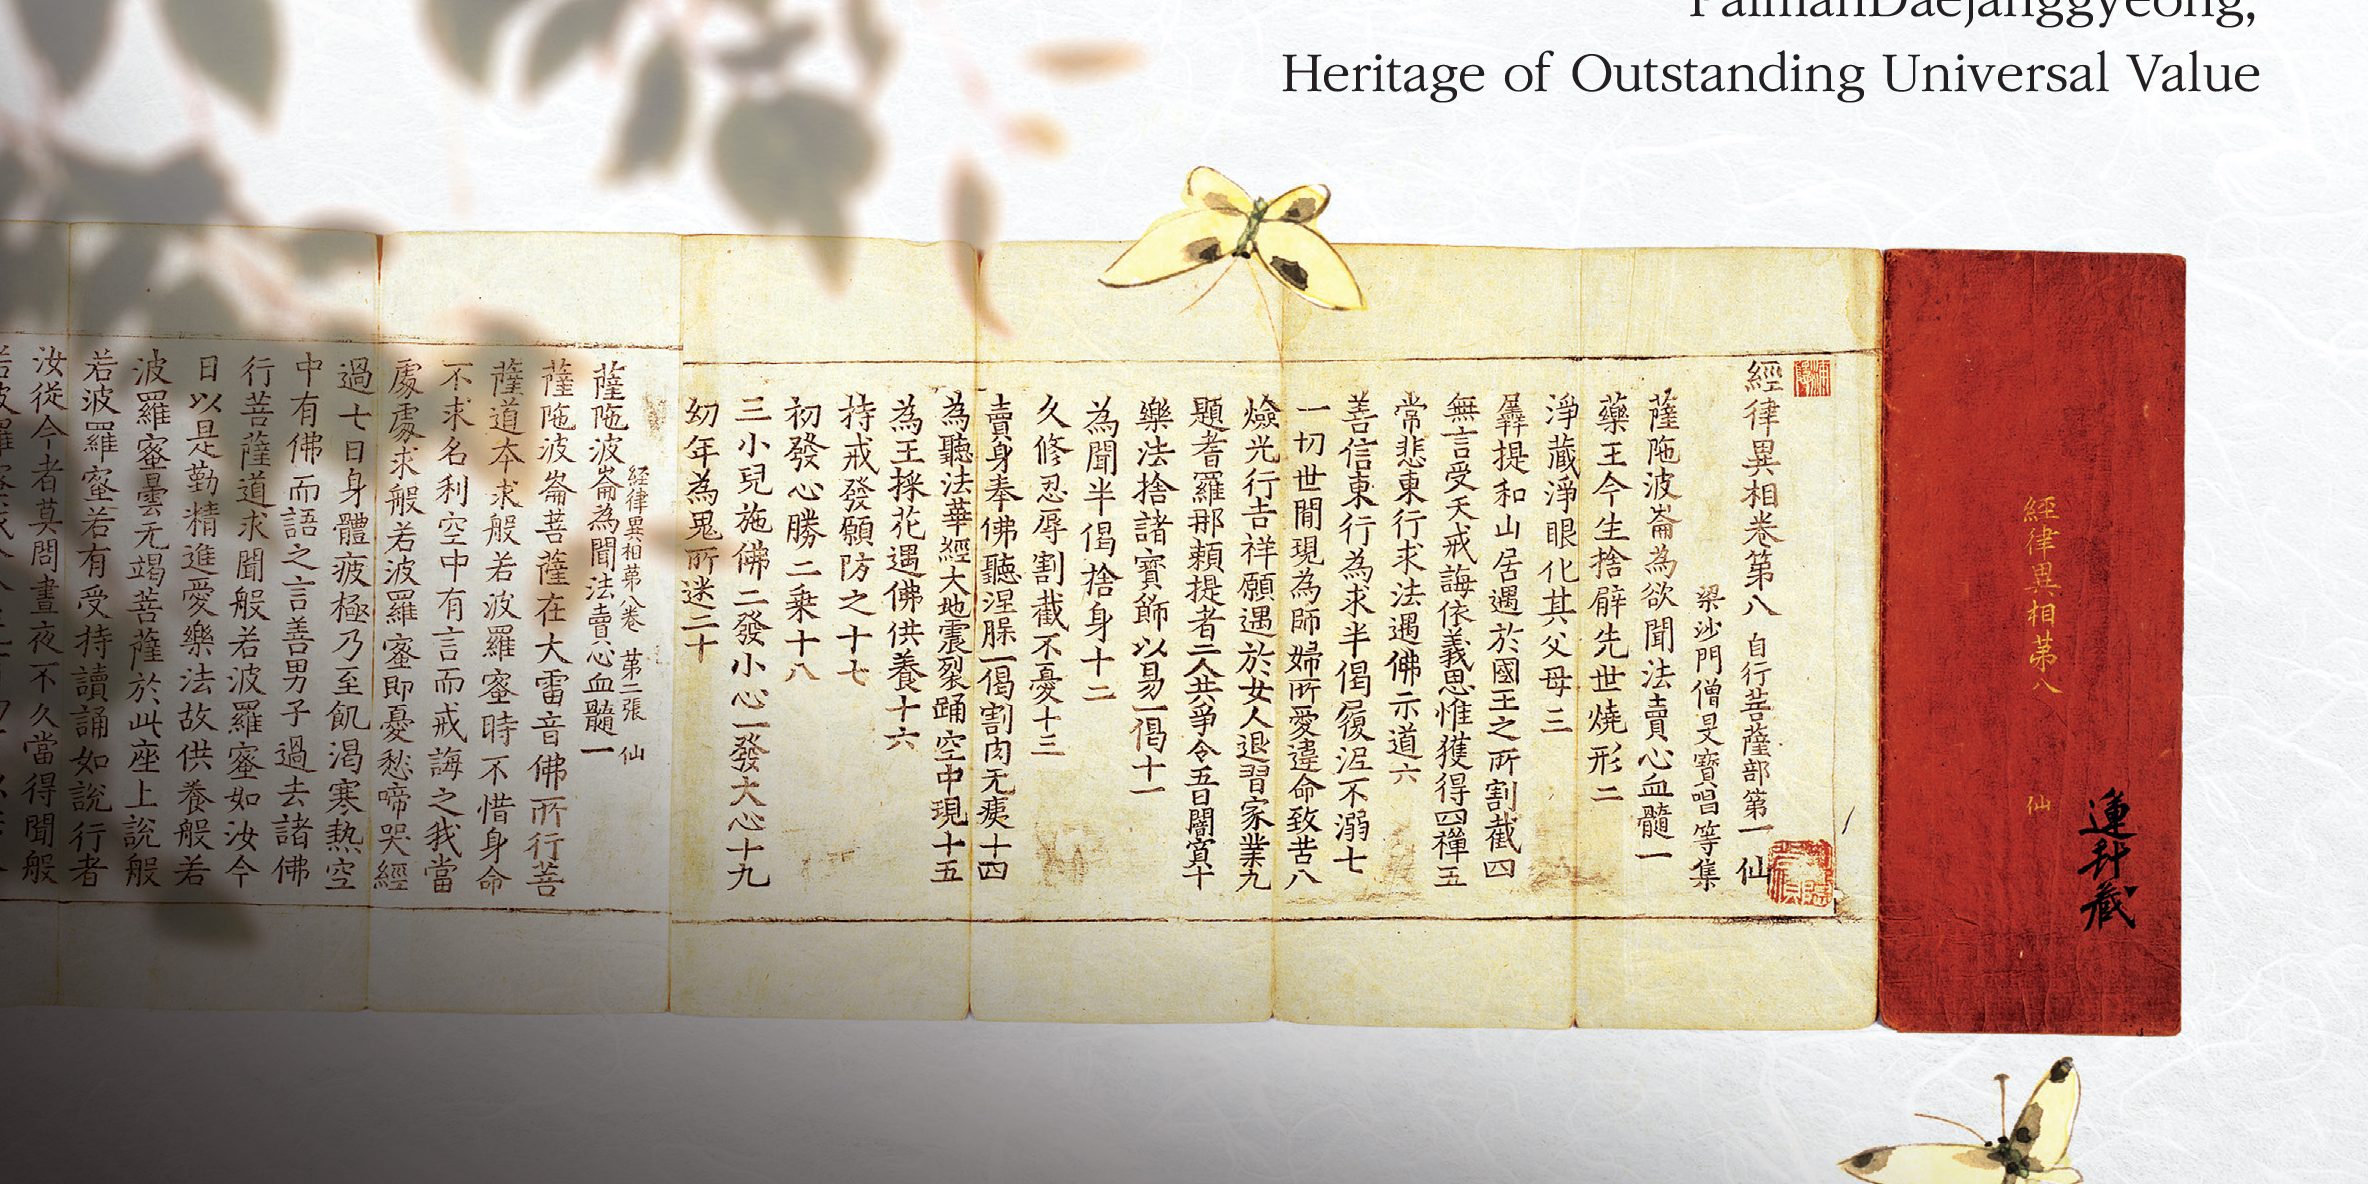 PalmanDaejanggyeong,
Heritage of Outstanding Universal Value
經律異相苐八 仙
蓮科藏
經律異相卷第八 自行菩薩部第一 仙
梁沙門僧旻寶唱等集
薩陁波崙為欲聞法賣心血髓一
藥王今生捨臂先世燒形二
淨藏淨眼化其父母三
羼提和山居遇於國王之所割截四
無言受天戒誨依義思惟獲得四禪五
常悲東行求法遇佛示道六
善信東行為求半偈履泥不溺七
一切世間現為師婦所愛違命致苦八
燄光行吉祥願遇於女人退習家業九
題耆羅那賴提耆二人共爭令五日闇冥十
樂法捨諸寶飾以易一偈十一
為聞半偈捨身十二
久修忍辱割截不憂十三
賣身奉佛聽涅槃一偈割肉无痍十四
為聽法華經大地震裂踊空中現十五
為王採花遇佛供養十六
持戒發願防之十七
初發心勝二乘十八
三小兒施佛二發小心一發大心十九
幼年為鬼所迷二十
經律異相苐八卷 苐二張 仙
薩陁波崙為聞法賣心血髓一
薩陁波崙菩薩在大雷音佛所行菩
薩道本求般若波羅蜜時不惜身命
不求名利空中有言而戒誨之我當
處處求般若波羅蜜即憂愁啼哭經
過七日身體疲極乃至飢渴寒熱空
中有佛而語之言善男子過去諸佛
行菩薩道求聞般若波羅蜜如汝今
日以是勤精進愛樂法故供養般若
波羅蜜曇无竭菩薩於此座上說般
若波羅蜜若有受持讀誦如說行者
汝從今者莫問晝夜不久當得聞般